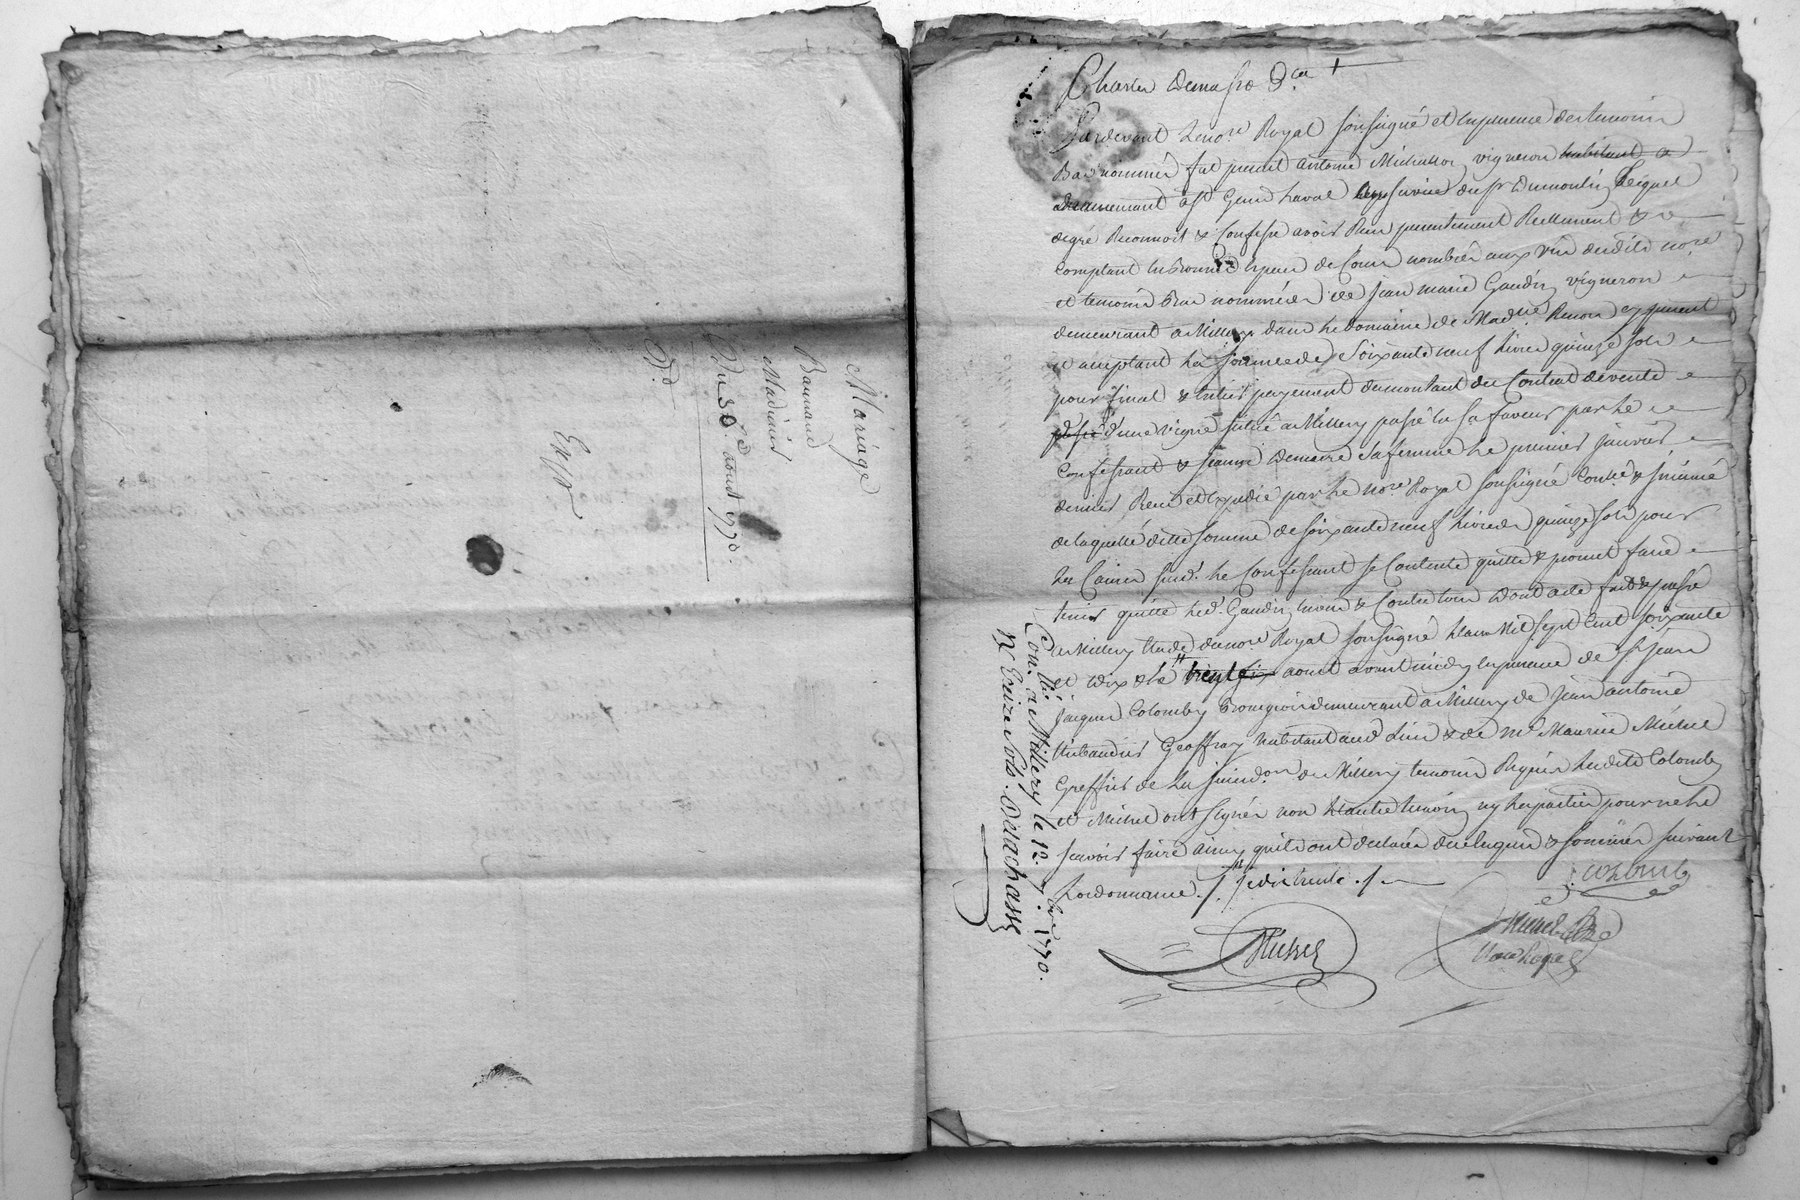 Mariage
Baunand
Madinier
Du 30e aout 1770.
Exp.
Do
Pardevant le no.re Royal soussigné et en presence des temoins
Bas nommés fut present antoine vigneron habitant a
demeurant a st Genis Laval au service du sr Dumoulin lequel
degré Reconnoit & Confesse avoir Reçu presentement Reellement &
comptant en bonnes especes de Cours nombrées aux vües desdits no.re
et temoins Bas nommés de Jean marie Gaudin vigneron
demeurant a Millery dans le domaine de Mad.lle Renou cy present
et acceptant la somme de Soixante neuf livres quinze sols
pour final & entier payement du montant du Contrat de vente
passé d'une vigne située a Millery passé en sa faveur par le
Confessant & Jeanne Demare sa femme le premier Janvier
dernier Reçu et expedié par le no.re Royal soussigné Conllé & sinué
de laquelle ditte somme de soixante neuf livres quinze sols pour
les Causes susd. le Confessant se Contente quitte & promet faire
tenir quitte led. Gaudin envers & Contre tous Dont acte fait & passé
a Millery Etude du no.re Royal soussigné L'an Mil sept Cent soixante
et dix & le trente six aout avant midy en presence de sr Jean
Jacques Colomby Bourgeois demeurant a Millery de Jean antoine
Thibaudier Geoffray habitant aud. Lieu & de me Maurice Michel
Greffier de la Jurid.on de Millery temoins Requis lesdits Colomby
et Michel ont signés non l'autre temoin ny les parties pour ne le
scavoir faire ainsy qu'ils ont declarés de ce enquis & sommés suivant
L'ordonnance. / Je dis trente ./
Colomby
Michel
Con.llé a Millery le 12. 7.bre 1770.
R. treize sols. Darachasse